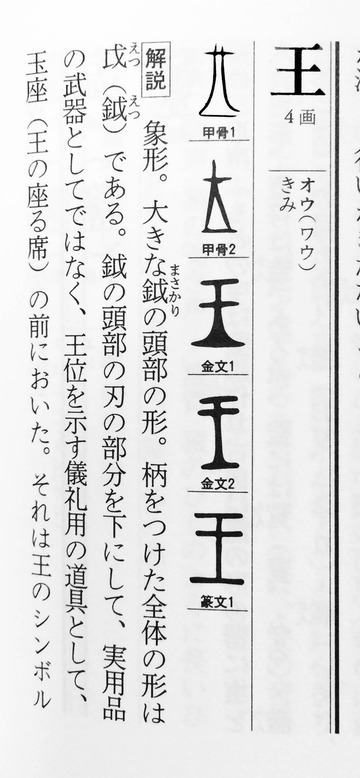 王
4画
オウ(ワウ)
きみ
甲骨1
甲骨2
金文1
金文2
篆文1
解説
象形。大きな鉞の頭部の形。柄をつけた全体の形は
まさかり
戉(鉞)である。鉞の頭部の刃の部分を下にして、実用品
えつ えつ
の武器としてではなく、王位を示す儀礼用の道具として、
玉座(王の座る席)の前においた。それは王のシンボル